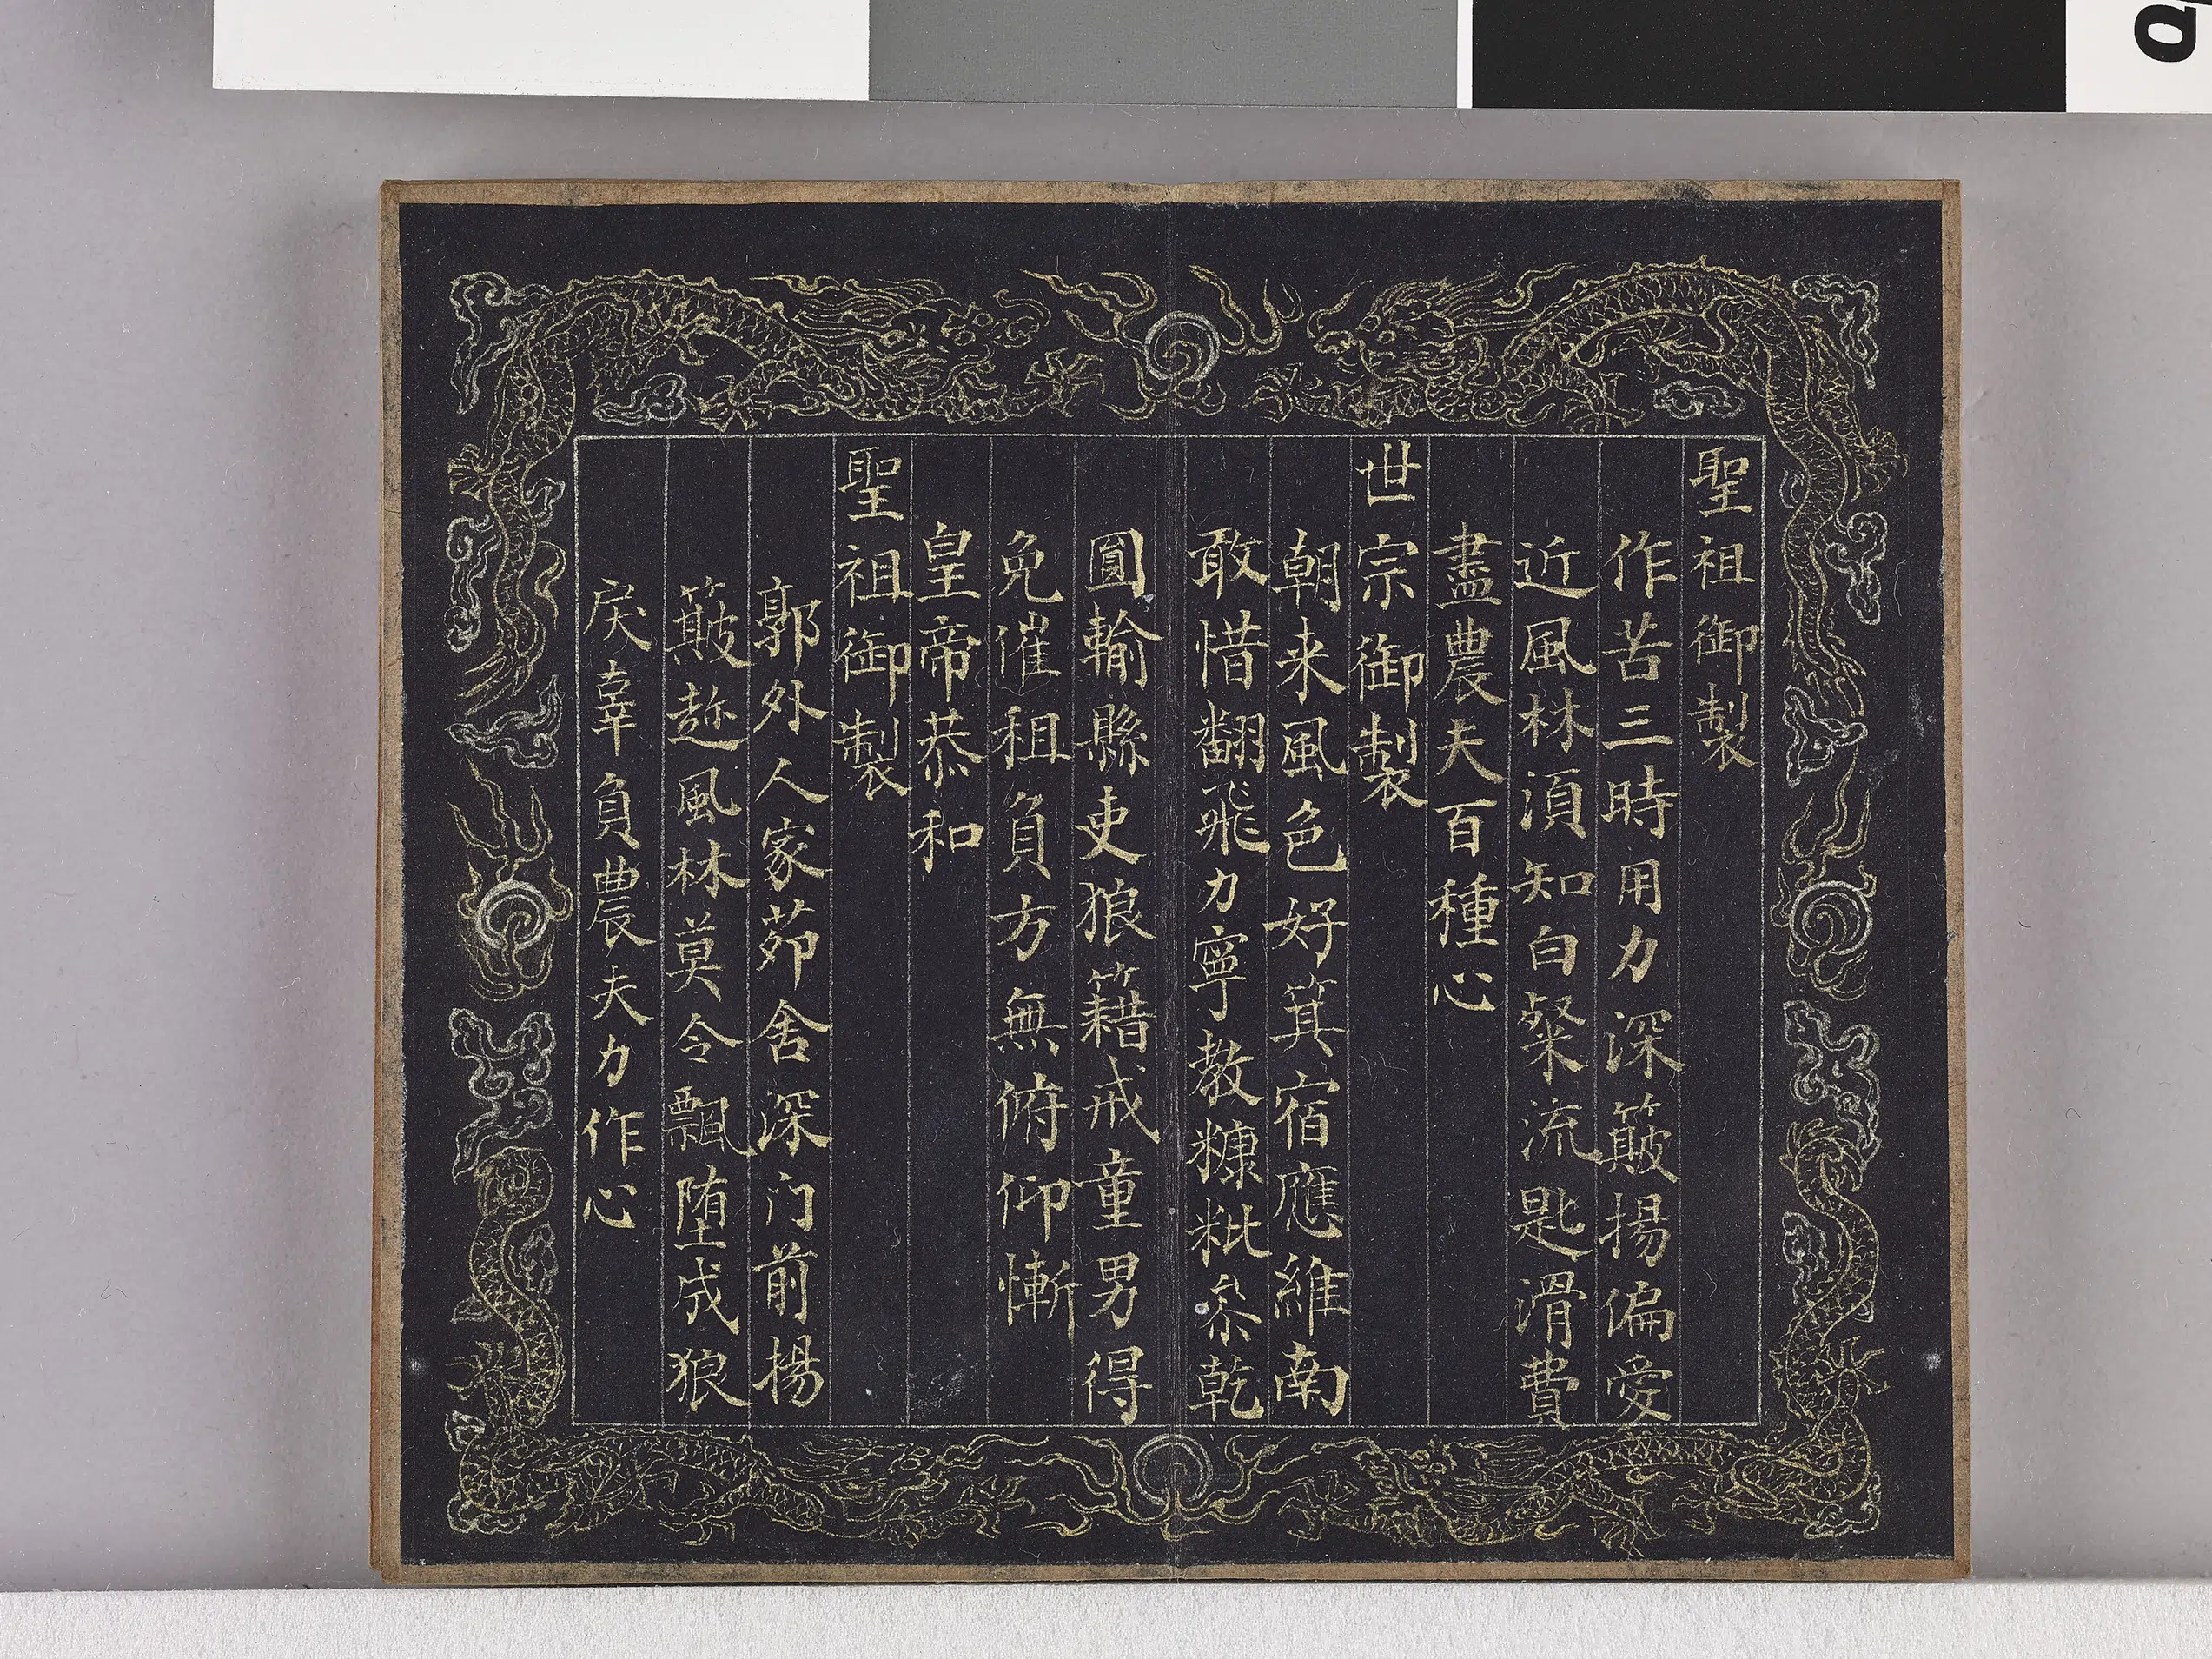 聖祖御製
作苦三時用力深簸揚偏愛
近風林須知白粲流匙滑費
盡農夫百種心
世宗御製
朝来風色好箕宿應維南
敢惜翻飛力寧教糠粃叅乾
圓輸縣吏狼籍戒童男得
免催租負方無俯仰慚
皇帝恭和
聖祖御製
郭外人家茆舍深门前揚
簸趂風林莫令飄堕成狼
戾辜負農夫力作心